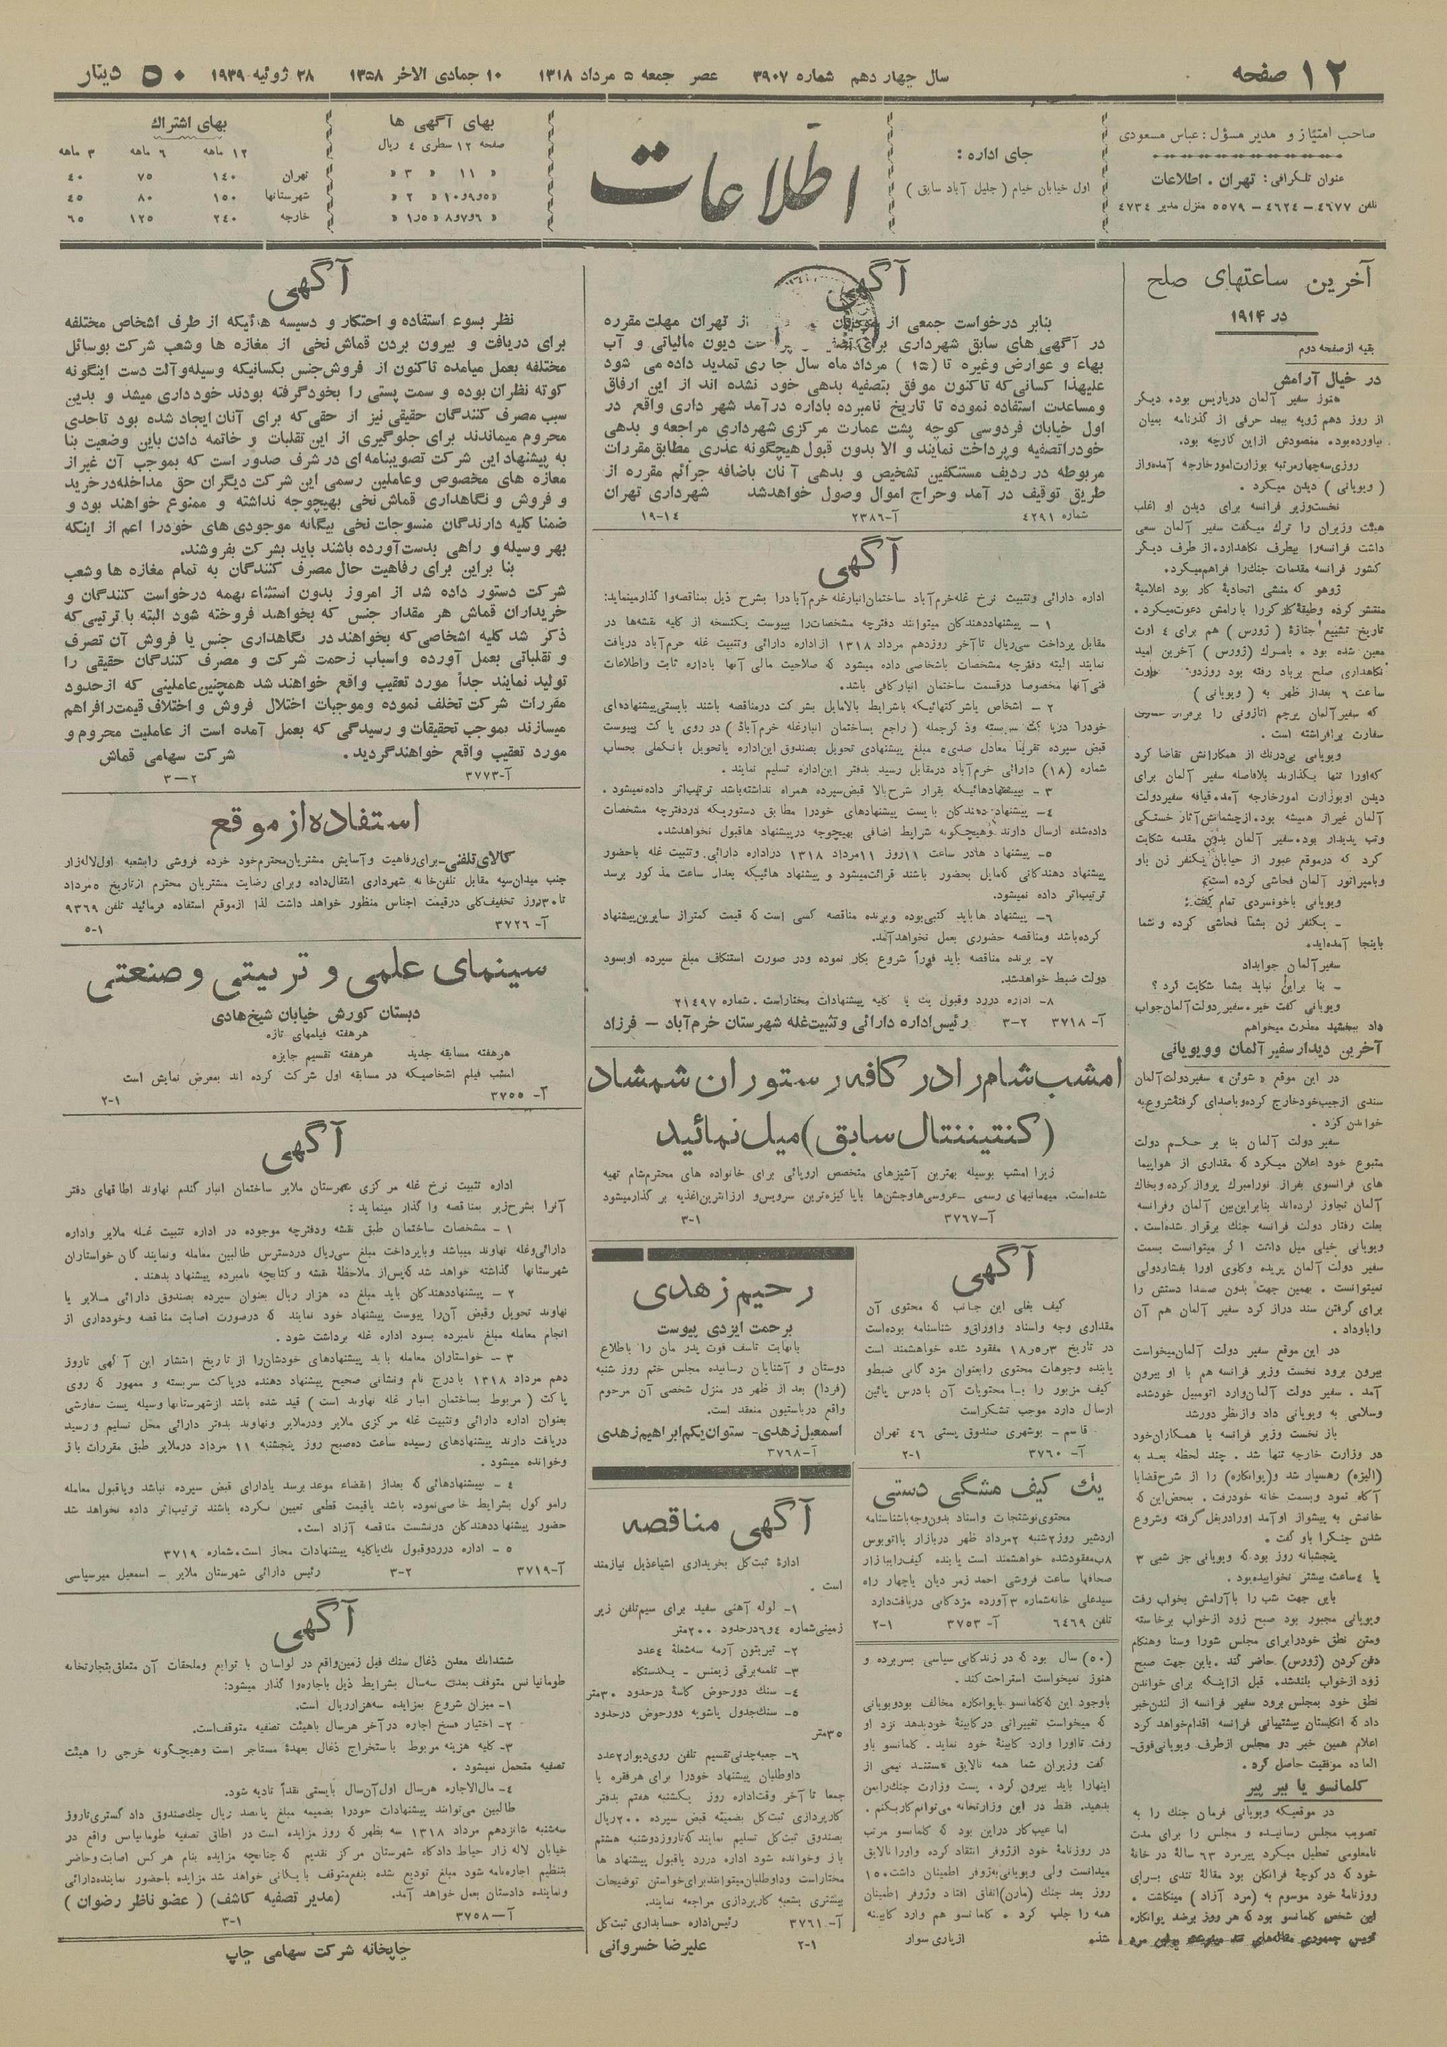 ۱۲ صفحه
سال چهاردهم شماره ۳۹۰۷ عصر جمعه ۵ مرداد ۱۳۱۸ ۱۰ جمادی الاخر ۱۳۵۸ ۲۸ ژوئیه ۱۹۳۹
۵۰ دینار
صاحب امتیاز و مدیر مسؤل : عباس مسعودی
عنوان تلگرافی : تهران . اطلاعات
تلفن ۴۶۷۷ - ۴۶۲۴ - ۵۵۷۹ منزل مدیر ۴۷۳۴
جای اداره :
اول خیابان خیام ( جلیل آباد سابق )
اطلاعات
بهای آگهی ها
صفحه ۱۲ سطری ۴ ریال
« ۱۱ « ۳ «
« ۵و۹و۱۰ « ۲ «
« ۶و۷و۸ « ۱ر۵ «
بهای اشتراك
۱۲ ماهه ۶ ماهه ۳ ماهه
تهران ۱۴۰ ۷۵ ۴۰
شهرستانها ۱۵۰ ۸۰ ۴۵
خارجه ۲۴۰ ۱۲۵ ۶۵
آخرین ساعتهای صلح
در ۱۹۱۴
بقیه از صفحه دوم
در خیال آرامش
هنوز سفیر آلمان در پاریس بود. دیگر
از روز دهم ژویه ببعد حرفی از گذرنامه بمیان
نیاورده بود، مقصودش از این کار چه بود.
روزی سه چهار مرتبه بوزارت امور خارجه آمده و از
( ویویانی ) دیدن میکرد .
نخست وزیر فرانسه برای دیدن او اغلب
هیئت وزیران را ترك میگفت سفیر آلمان سعی
داشت فرانسه را بیطرف نگاهدارد. از طرف دیگر
کشور فرانسه مقدمات جنك را فراهم میکرد.
ژوهو که منشی اتحادیهٔ کار بود اعلامیهٔ
منتشر کرده وطبقهٔ کارگر را بآرامش دعوت میکرد.
تاریخ تشییع جنازهٔ ( ژورس ) هم برای ۴ اوت
معین شده بود . بامرك (ژورس) آخرین امید
نگاهداری صلح برباد رفته بود
ساعت ۶ بعد از ظهر به ( ویویانی )
که سفیر آلمان پرچم اتازونی را برفراز
سفارت برافراشته است .
ویویانی بی‌درنك از همکارانش تقاضا کرد
که او را تنها بگذارند بلافاصله سفیر آلمان برای
دیدن او بوزارت امور خارجه آمد. قیافه سفیر دولت
آلمان غیر از همیشه بود. از چشمانش آثار خستگی
وتب پدیدار بود. سفیر آلمان بدون مقدمه شکایت
کرد که درموقع عبور از خیابان یکنفر زن باو
وبامپراتور آلمان فحاشی کرده است.
ویویانی باخونسردی تمام گفت:
- یکنفر زن بشما فحاشی کرده و شما
باینجا آمده‌اید.
سفیر آلمان جوابداد
- بنا براین نباید بشما شکایت کرد ؟
ویویانی گفت خیر. سفیر دولت آلمان جواب
داد ببخشید معذرت میخواهم
آخرین دیدار سفیر آلمان وویویانی
در این موقع « شوئن » سفیر دولت آلمان
سندی از جیب خود خارج کرده و باصدای گرفتهٔ شروع به
خواندن کرد .
سفیر دولت آلمان بنا بر حکم دولت
متبوع خود اعلان میکرد که مقداری از هواپیما
های فرانسوی بفراز نورامبرك پرواز کرده و بخاك
آلمان تجاوز کرده‌اند بنابراین بین آلمان وفرانسه
بعلت رفتار دولت فرانسه جنك برقرار شده است .
ویویانی خیلی میل داشت اگر میتوانست بسمت
سفیر دولت آلمان پریده وگلوی اورا بفشار ولی
نمیتوانست . بهمین جهت بدون صدا دستش را
برای گرفتن سند دراز کرد سفیر آلمان هم آن
را باوداد .
در این موقع سفیر دولت آلمان میخواست
بیرون برود نخست وزیر فرانسه هم با او بیرون
آمد . سفیر دولت آلمان وارد اتومبیل خود شده
وسلامی به ویویانی داد واز نظر دور شد
باز نخست وزیر فرانسه با همکاران خود
در وزارت خارجه تنها شد . چند لحظه بعد به
(الیزه) رهسپار شد و (پوانکاره) را از شرح قضایا
آگاه نمود وبسمت خانه خود رفت . بمحض این که
خانمش به پیشواز او آمد او را در بغل گرفته و شروع
شدن جنك را باو گفت .
پنجشبانه روز بود که ویویانی جز شبی ۳
یا ۴ ساعت بیشتر نخوابیده بود .
باین جهت شب را با آرامش بخواب رفت
ویویانی مجبور بود صبح زود از خواب برخاسته
ومتن نطق خود را برای مجلس شورا وسنا وهنگام
دفن کردن (ژورس) حاضر کند . باین جهت صبح
زود از خواب بلندشد. قبل از اینکه برای خواندن
نطق خود بمجلس برود سفیر فرانسه از لندن خبر
داد که انگلستان بپشتیبانی فرانسه اقدام خواهد کرد
اعلام همین خبر دو مجلس از طرف ویویانی فوق-
العاده موفقیت حاصل کرد .
کلمانسو یا ببر پیر
در موقعیکه ویویانی فرمان جنك را به
تصویب مجلس رسانیده و مجلس را برای مدت
نامعلومی تعطیل میکرد پیرمرد ۶۳ سالهٔ در خانهٔ
خود که در کوچهٔ فرانکان بود مقالهٔ تندی بسرای
روزنامهٔ خود موسوم به (مرد آزاد) مینگاشت .
این شخص کلمانسو بود که هر روز برضد پوانکاره
آگهی
بنابر درخواست جمعی از مودیان از تهران مهلت مقرره
در آگهی های سابق شهرداری برای دیون مالیاتی و آب
بهاء و عوارض وغیره تا (۱۵ ) مرداد ماه سال جاری تمدید داده می شود
علیهذا کسانی که تاکنون موفق بتصفیه بدهی خود نشده اند از این ارفاق
ومساعدت استفاده نموده تا تاریخ نامبرده باداره درآمد شهرداری واقع در
اول خیابان فردوسی کوچه پشت عمارت مرکزی شهرداری مراجعه و بدهی
خود را تصفیه وپرداخت نمایند و الا بدون قبول هیچگونه عذری مطابق مقررات
مربوطه در ردیف مستنکفین تشخیص و بدهی آنان باضافه جرائم مقرره از
طریق توقیف در آمد وحراج اموال وصول خواهدشد شهرداری تهران
شماره ۴۲۹۱ آ-۲۳۸۶ ۱۴-۱۹
آگهی
اداره دارائی وتثبیت نرخ غله خرم آباد ساختمان انبار غله خرم آباد را بشرح ذیل بمناقصه واگذار مینماید:
۱ - پیشنهاد دهندکان میتوانند دفترچه مشخصات را بپیوست یکنسخه از کلیه نقشه‌ها در
مقابل پرداخت سی ریال تا آخر روز دهم مرداد ۱۳۱۸ از اداره دارائی وتثبیت غله خرم آباد دریافت
نمایند البته دفترچه مشخصات باشخاصی داده میشود که صلاحیت مالی آنها باداره ثابت واطلاعات
فنی آنها مخصوصا درقسمت ساختمان انبار کافی باشد.
۲ - اشخاص یاشرکتهائیکه باشرایط بالامایل بشرکت درمناقصه باشند بایستی پیشنهادهای
خود را در پاکت سر بسته وذکر جمله ( راجع بساختمان انبار غله خرم آباد ) در روی پاکت پیوست
قبض سپرده تقریبا معادل صدی ۵ مبلغ پیشنهادی تحویل بصندوق این اداره یا تحویل بانک ملی بحساب
شماره (۱۸) دارائی خرم آباد در مقابل رسید بدفتر این اداره تسلیم نمایند .
۳ - پیشنهادهائیکه بقرار شرح بالا قبض سپرده همراه نداشته باشد ترتیب اثر داده نمیشود .
۴ - پیشنهاد دهندکان بایست پیشنهادهای خود را مطابق دستوریکه در دفترچه مشخصات
داده شده ارسال دارند وهیچگونه شرایط اضافی بهیچوجه در پیشنهادها قبول نخواهدشد.
۵- پیشنهاد ها در ساعت ۱۱ روز ۱۱ مرداد ۱۳۱۸ در اداره دارائی وتثبیت غله با حضور
پیشنهاد دهندگانی که مایل بحضور باشند قرائت میشود و پیشنهاد هائیکه بعد از ساعت مذکور برسد
ترتیب اثر داده نمیشود.
۶- پیشنهاد ها باید کتبی بوده وبرنده مناقصه کسی است که قیمت کمتر از سایرین پیشنهاد
کرده باشد ومناقصه حضوری بعمل نخواهد آمد.
۷- برنده مناقصه باید فوراً شروع بکار نموده ودر صورت استنکاف مبلغ سپرده او بسود
دولت ضبط خواهدشد.
۸- اداره دررد وقبول یك یا کلیه پیشنهادات مختار است . شماره ۲۱۴۹۷
آ- ۳۷۱۸ ۲-۳ رئیس اداره دارائی وتثبیت غله شهرستان خرم آباد - فرزاد
امشب شام را در کافه رستوران شمشاد
(کنتیننتال سابق) میل نمائید
زیرا امشب بوسیله بهترین آشپزهای متخصص اروپائی برای خانواده های محترم شام تهیه
شده است. میهمانیهای رسمی - عروسی ها وجشن ها با پاکیزه ترین سرویس و ارزانترین اغذیه بر گذار میشود
آ-۳۷۶۷ ۱-۳
آگهی
کیف بغلی این جانب که محتوی آن
مقداری وجه واسناد واوراق و شناسنامه بوده است
در تاریخ ۳ر۵ر۱۸ مفقود شده خواهشمند است
یابنده وجوهات محتوی را بعنوان مزدگانی ضبط و
کیف مزبور را با محتویات آن بآدرس پائین
ارسال دارد موجب تشکر است
قاسم - بوشهری صندوق پستی ۴۶ تهران
آ- ۳۷۶۰ ۱-۲
یك کیف مشگی دستی
محتوی نوشتجات واسناد بدون وجه باشناسنامه
اردشیر روز ۲شنبه ۲مرداد ظهر در بازار یا اتوبوس
۸ب مفقود شده خواهشمند است یابنده کیف را ببازار
صحافها ساعت فروشی احمد زمردیان یا چهار راه
سیدعلی خانه شماره ۳ آورده مزدکانی دریافت دارد
تلفن ۶۴۶۹ آ- ۳۷۵۳ ۱-۲
(۵۰) سال بود که در زندگانی سیاسی بسر برده و
هنوز نمیخواست استراحت کند .
باوجود این که کلمانسو باپوانکاره مخالف بود ویویانی
که میخواست تغییراتی در کابینهٔ خود بدهد نزد او
رفت تا اورا وارد کابینهٔ خود نماید . کلمانسو باو
گفت وزیران شما همه نالایق هستند نیمی از
اینها را باید بیرون کرد . پست وزارت جنك را بمن
بدهید. فقط در این وزارتخانه می توانم کار بکنم .
اما عیب کار در این بود که کلمانسو مرتب
در روزنامهٔ خود از ژوفر انتقاد کرده واورا نالایق
میدانست ولی ویویانی به ژوفر اطمینان داشت. ۱۵
روز بعد جنك (مارن) اتفاق افتاد وژوفر اطمینان
همه را جلب کرد . کلمانسو هم وارد کابینه
شد. ازپاری سوار
رحیم زهدی
برحمت ایزدی پیوست
بانهایت تاسف فوت پدر مان را باطلاع
دوستان و آشنایان رسانیده مجلس ختم روز شنبه
(فردا) بعد از ظهر در منزل شخصی آن مرحوم
واقع در باستیون منعقد است.
اسمعیل زهدی- ستوان یکم ابراهیم زهدی
آ-۳۷۶۸
آگهی مناقصه
ادارهٔ ثبت کل بخریداری اشیاء ذیل نیازمند
است .
۱- لوله آهنی سفید برای سیم تلفن زیر
زمینی شماره ۴و۶ درحدود ۲۰۰متر
۲- تیربتون آرمه سه شعلهٔ ۴عدد
۳- تلمبه برقی زیمنس - یکدستگاه
۴- سنك دور حوض کاسهٔ در حدود ۳۰متر
۵- سنك جدول پاشویه دور حوض درحدود
۳۵متر
۶- جعبه چدنی تقسیم تلفن روی دیوار ۲عدد
داوطلبان پیشنهاد خود را برای هر فقره یا
جمعا تا آخر وقت اداره روز یکشنبه هفتم بدفتر
کارپردازی ثبت کل بضمیمه قبض سپرده ۲۰۰ریال
بصندوق ثبت کل تسلیم نمایند که تا روز دوشنبه هشتم
باز وخوانده شود اداره دررد یا قبول پیشنهاد ها
مختار است وداوطلبان میتوانند برای خواستن توضیحات
بیشتری بشعبه کارپردازی مراجعه نمایند.
آ- ۳۷۶۱ رئیس اداره حسابداری ثبت کل
۱-۲ علیرضا خسروانی
آگهی
نظر بسوء استفاده و احتکار و دسیسه هائیکه از طرف اشخاص مختلفه
برای دریافت و بیرون بردن قماش نخی از مغازه ها وشعب شرکت بوسائل
مختلفه بعمل میامده تاکنون از فروش جنس بکسانیکه وسیله وآلت دست اینگونه
کوته نظران بوده و سمت پستی را بخود گرفته بودند خود داری میشد و بدین
سبب مصرف کنندگان حقیقی نیز از حقی که برای آنان ایجاد شده بود تاحدی
محروم میماندند برای جلوگیری از این تقلبات و خاتمه دادن باین وضعیت بنا
به پیشنهاد این شرکت تصویبنامه ای در شرف صدور است که بموجب آن غیر از
مغازه های مخصوص وعاملین رسمی این شرکت دیگران حق مداخله در خرید
و فروش و نگاهداری قماش نخی بهیچوجه نداشته و ممنوع خواهند بود و
ضمنا کلیه دارندگان منسوجات نخی بیگانه موجودی های خود را اعم از اینکه
بهر وسیله و راهی بدست آورده باشند باید بشرکت بفروشند.
بنا براین برای رفاهیت حال مصرف کنندگان به تمام مغازه ها وشعب
شرکت دستور داده شد از امروز بدون استثناء بهمه درخواست کنندگان و
خریداران قماش هر مقدار جنس که بخواهند فروخته شود البته با ترتیبی که
ذکر شد کلیه اشخاصی که بخواهند در نگاهداری جنس یا فروش آن تصرف
و تقلباتی بعمل آورده واسباب زحمت شرکت و مصرف کنندگان حقیقی را
تولید نمایند جداً مورد تعقیب واقع خواهند شد همچنین عاملینی که از حدود
مقررات شرکت تخلف نموده وموجبات اختلال فروش و اختلاف قیمت را فراهم
میسازند بموجب تحقیقات و رسیدگی که بعمل آمده است از عاملیت محروم و
مورد تعقیب واقع خواهند گردید. شرکت سهامی قماش
آ-۳۷۷۳ ۲-۳
استفاده از موقع
کالای تلفنی - برای رفاهیت وآسایش مشتریان محترم خود خرده فروشی را بشعبه اول لاله زار
جنب میدان سپه مقابل تلفن خانه شهرداری انتقال داده و برای رضایت مشتریان محترم از تاریخ ۵ مرداد
تا ۳۰روز تخفیف کلی در قیمت اجناس منظور خواهد داشت لذا از موقع استفاده فرمائید تلفن ۹۳۶۹
آ- ۳۷۲۶ ۱-۵
سینمای علمی و تربیتی و صنعتی
دبستان کورش خیابان شیخ هادی
هر هفته فیلمهای تازه
هر هفته مسابقه جدید هر هفته تقسیم جایزه
امشب فیلم اشخاصیکه در مسابقه اول شرکت کرده اند بمعرض نمایش است
آ- ۳۷۵۵ ۱-۲
آگهی
اداره تثبیت نرخ غله مرکزی شهرستان ملایر ساختمان انبار گندم نهاوند اطاقهای دفتر
آنرا بشرح زیر بمناقصه واگذار مینماید :
۱ - مشخصات ساختمان طبق نقشه ودفترچه موجوده در اداره تثبیت غله ملایر واداره
دارائی وغله نهاوند میباشد وبا پرداخت مبلغ سی ریال دردسترس طالبین معامله ونمایندگان خواستاران
شهرستانها گذاشته خواهد شد که پس از ملاحظهٔ نقشه و کتابچه نامبرده پیشنهاد بدهند .
۲ - پیشنهاد دهندکان باید مبلغ ده هزار ریال بعنوان سپرده بصندوق دارائی ملایر یا
نهاوند تحویل وقبض آن را پیوست پیشنهاد خود نمایند که درصورت اصابت مناقصه وخودداری از
انجام معامله مبلغ نامبرده بسود اداره غله برداشت شود .
۳ - خواستاران معامله باید پیشنهادهای خودشان را از تاریخ انتشار این آگهی تا روز
دهم مرداد ۱۳۱۸ با درج نام ونشانی صحیح پیشنهاد دهنده در پاکت سربسته و ممهور که روی
پاکت ( مربوط بساختمان انبار غله نهاوند است ) قید شده باشد از شهرستانها وسیله پست سفارشی
بعنوان اداره دارائی وتثبیت غله مرکزی ملایر ودرملایر ونهاوند بدفتر دارائی محل تسلیم و رسید
دریافت دارند پیشنهادهای رسیده ساعت ده صبح روز پنجشنبه ۱۱ مرداد در ملایر طبق مقررات باز
وخوانده میشود .
۴ - پیشنهادهائی که بعد از انقضاء موعد برسد یادارای قبض سپرده نباشد ویا قبول معامله
رامو کول بشرایط خاصی نموده باشد یا قیمت قطعی تعیین نکرده باشند ترتیب اثر داده نخواهد شد
حضور پیشنهاد دهندکان در نشست مناقصه آزاد است .
۵ - اداره دررد وقبول یك یا کلیه پیشنهادات مجاز است. شماره ۳۷۱۹
آ-۳۷۱۹ ۲-۳ رئیس دارائی شهرستان ملایر - اسمعیل میر سپاسی
آگهی
ششدانك معدن ذغال سنك فیل زمین واقع در لواسان با توابع وملحقات آن متعلق بتجارتخانه
طومانیانس متوقف بمدت سه سال بشرایط ذیل باجاره واگذار میشود:
۱- میزان شروع بمزایده سه هزار ریال است.
۲- اختیار فسخ اجاره در آخر هر سال باهیئت تصفیه متوقف است.
۳- کلیه هزینه مربوط باستخراج ذغال بعهدهٔ مستاجر است وهیچگونه خرجی را هیئت
تصفیه متحمل نمیشود .
۴- مال الاجاره هر سال اول آن سال بایستی نقداً تادیه شود.
طالبین می توانند پیشنهادات خود را بضمیمه مبلغ پانصد ریال چك صندوق دادگستری تا روز
سه شنبه شانزدهم مرداد ۱۳۱۸ سه بظهر که روز مزایده است در اطاق تصفیه طومانیانس واقع در
خیابان لاله زار حیاط دادگاه شهرستان مرکز تقدیم که چنانچه مزایده بنام هر کس اصابت وحاضر
بتنظیم اجاره نامه شود مبلغ تودیع شده بنفع متوقف بایگانی خواهد شد مزایده باحضور نماینده دارائی
و نماینده دادستان بعمل خواهد آمد. (مدیر تصفیه کاشف) ( عضو ناظر رضوان )
آ-۳۷۵۸ ۱-۳
چاپخانه شرکت سهامی چاپ